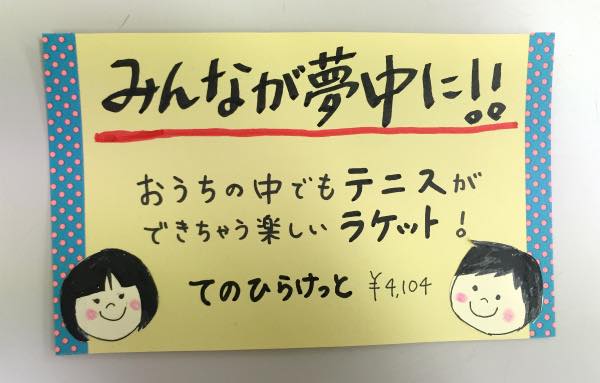 みんなが夢中に!!
おうちの中でもテニスが
できちゃう楽しいラケット!
てのひらけっと ¥4,104